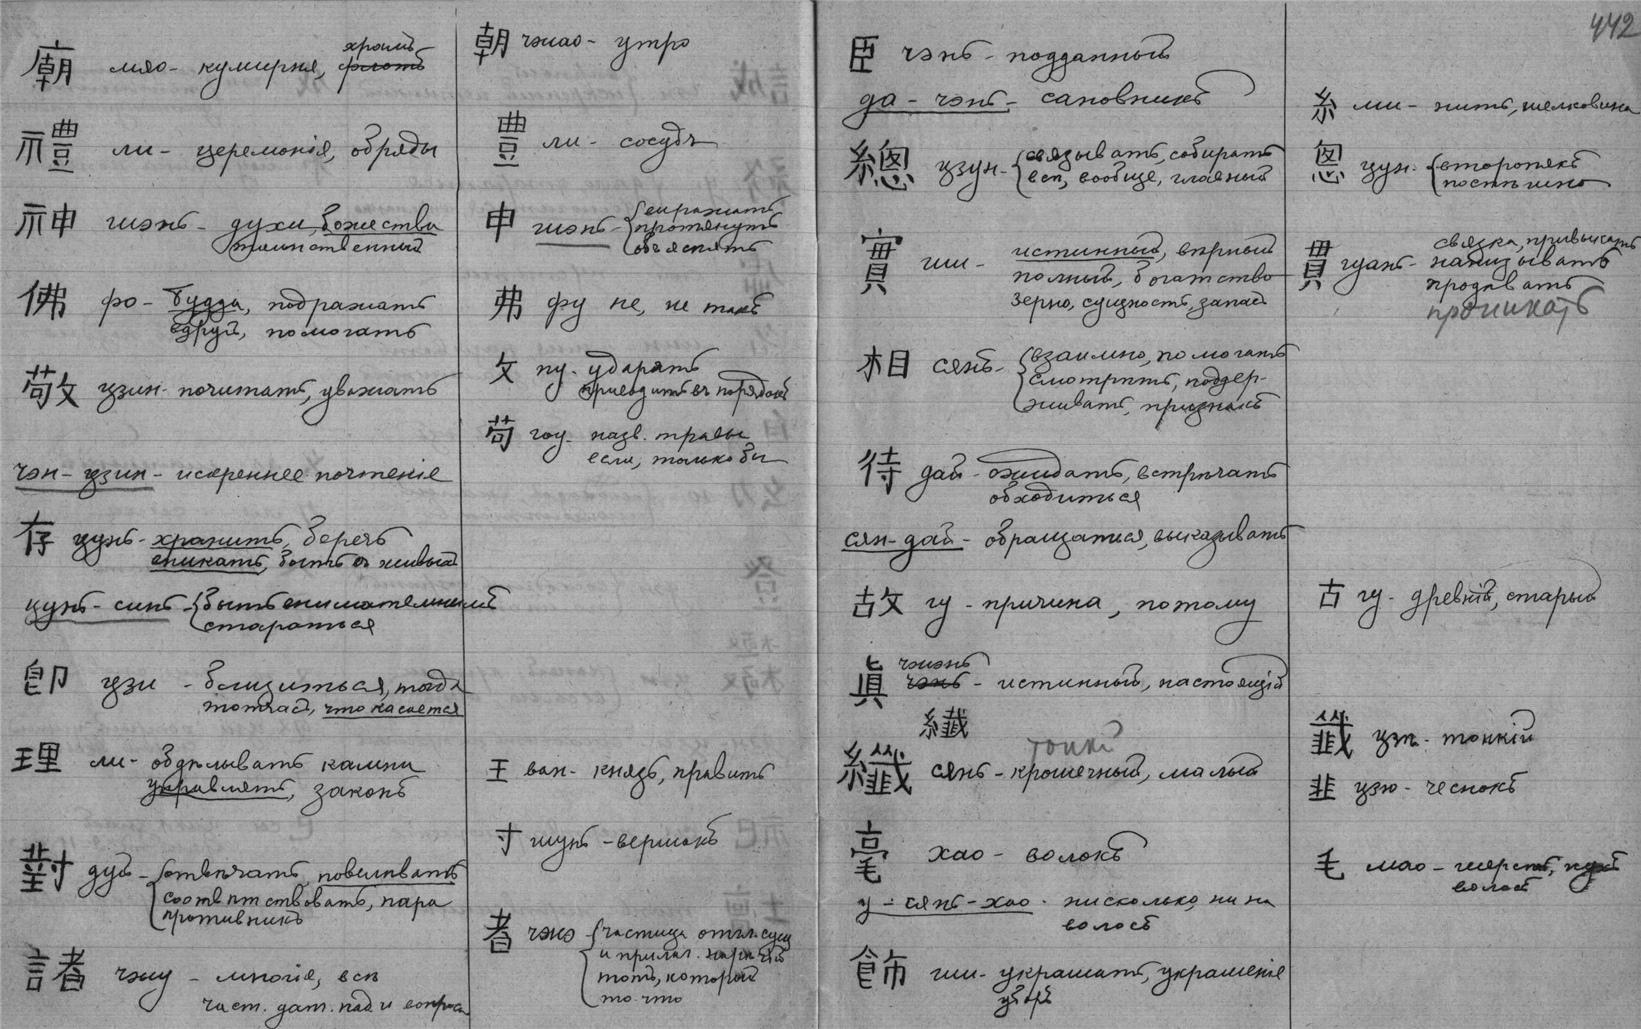 442
храмъ
廟 мяо - кумирня, флотъ
禮 ли - церемонія, обряды
神 шэнь - духи, божества
таинственный
佛 фо - Будда, подражать
вдругъ, помогать
敬 цзин - почитать, уважать
чэн - цзин - искреннее почтеніе
存 цунь - хранить, беречь
вникать, быть въ живыхъ
цунь - синь - быть внимательнымъ
стараться
卽 цзи - близиться, тогда
тотчасъ, что касается
理 ли - обдѣлывать камни
управлять, законъ
對 дуй - отвѣчать, повелѣвать
соотвѣтствовать, пара
противникъ
諸 чжу - многія, всѣ
част. дат. пад. и вопроса
朝 чжао - утро
豊 ли - сосудъ
申 шэнь - выражать
протянуть
объяснять
弗 фу не, не такъ
攵 пу - ударять
приводить въ порядокъ
苟 гоу - назв. травы
если, только бы
王 ван - князь, править
寸 цунь - вершокъ
者 чжэ - частица отгл. сущ
и прилаг. нарѣчій
тотъ, который
то что
臣 чэнь - подданный
да - чэнь - сановникъ
總 цзун - связывать, собирать
всѣ, вообще, главный
實 ши - истинный, вѣрный
полный, богатство
зерно, сущность, запасъ
相 сянь - взаимно, помогать
смотрѣть, поддер-
живать, признакъ
待 дай - ожидать, встрѣчать
обходиться
сян - дай - обращаться, выказывать
故 гу - причина, потому
чжэнь
眞 чэнь - истинный, настоящій
纖
тонкій
纖 сянь - крошечный, малый
毫 хао - волокъ
у - сянь - хао - нисколько, ни на
волосъ
飾 ши - украшать, украшеніе
уборъ
糸 ми - нить, шелковина
悤 цун - второпяхъ
поспѣшно
貫 гуань - связка, привыкать
нанизывать
продѣвать
проникать
古 гу - древній, старый
韱 цзѣ - тонкій
韭 цзю - чеснокъ
毛 мао - шерсть,
волосъ